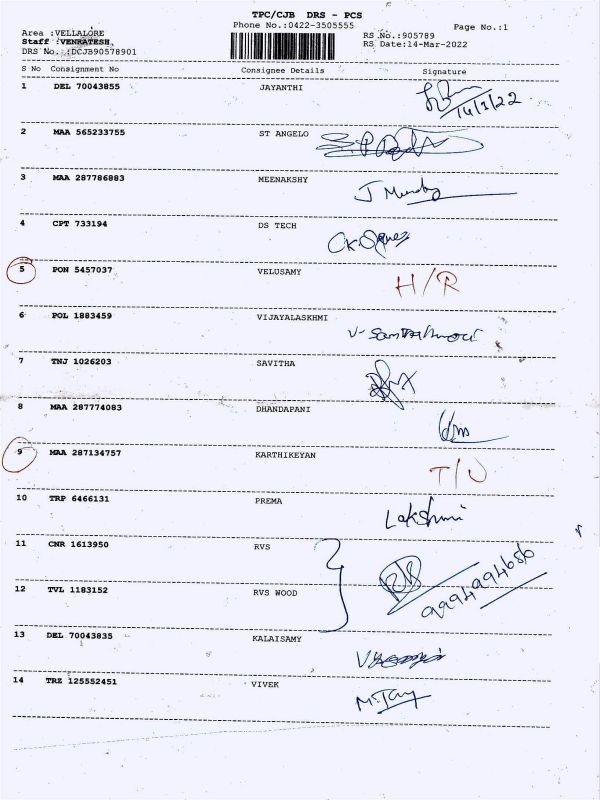 TPC/CJB DRS - PCS
Phone No.:0422-3505555
Page No.:1
Area :VELLALORE
RS No.:905789
Staff :VENKATESH,
RS Date:14-Mar-2022
DRS No.:DCJB90578901
S No Consignment No Consignee Details Signature
1 DEL 70043855 JAYANTHI
14/3/22
2 MAA 565233755 ST ANGELO
3 MAA 287786883 MEENAKSHY
4 CPT 733194 DS TECH
5 PON 5457037 VELUSAMY H/R
6 POL 1883459 VIJAYALASKHMI
7 TNJ 1026203 SAVITHA
8 MAA 287774083 DHANDAPANI
9 MAA 287134757 KARTHIKEYAN
10 TRP 6466131 PREMA Lakshmi
11 CNR 1613950 RVS
12 TVL 1183152 RVS WOOD
13 DEL 70043835 KALAISAMY
14 TRZ 125552451 VIVEK